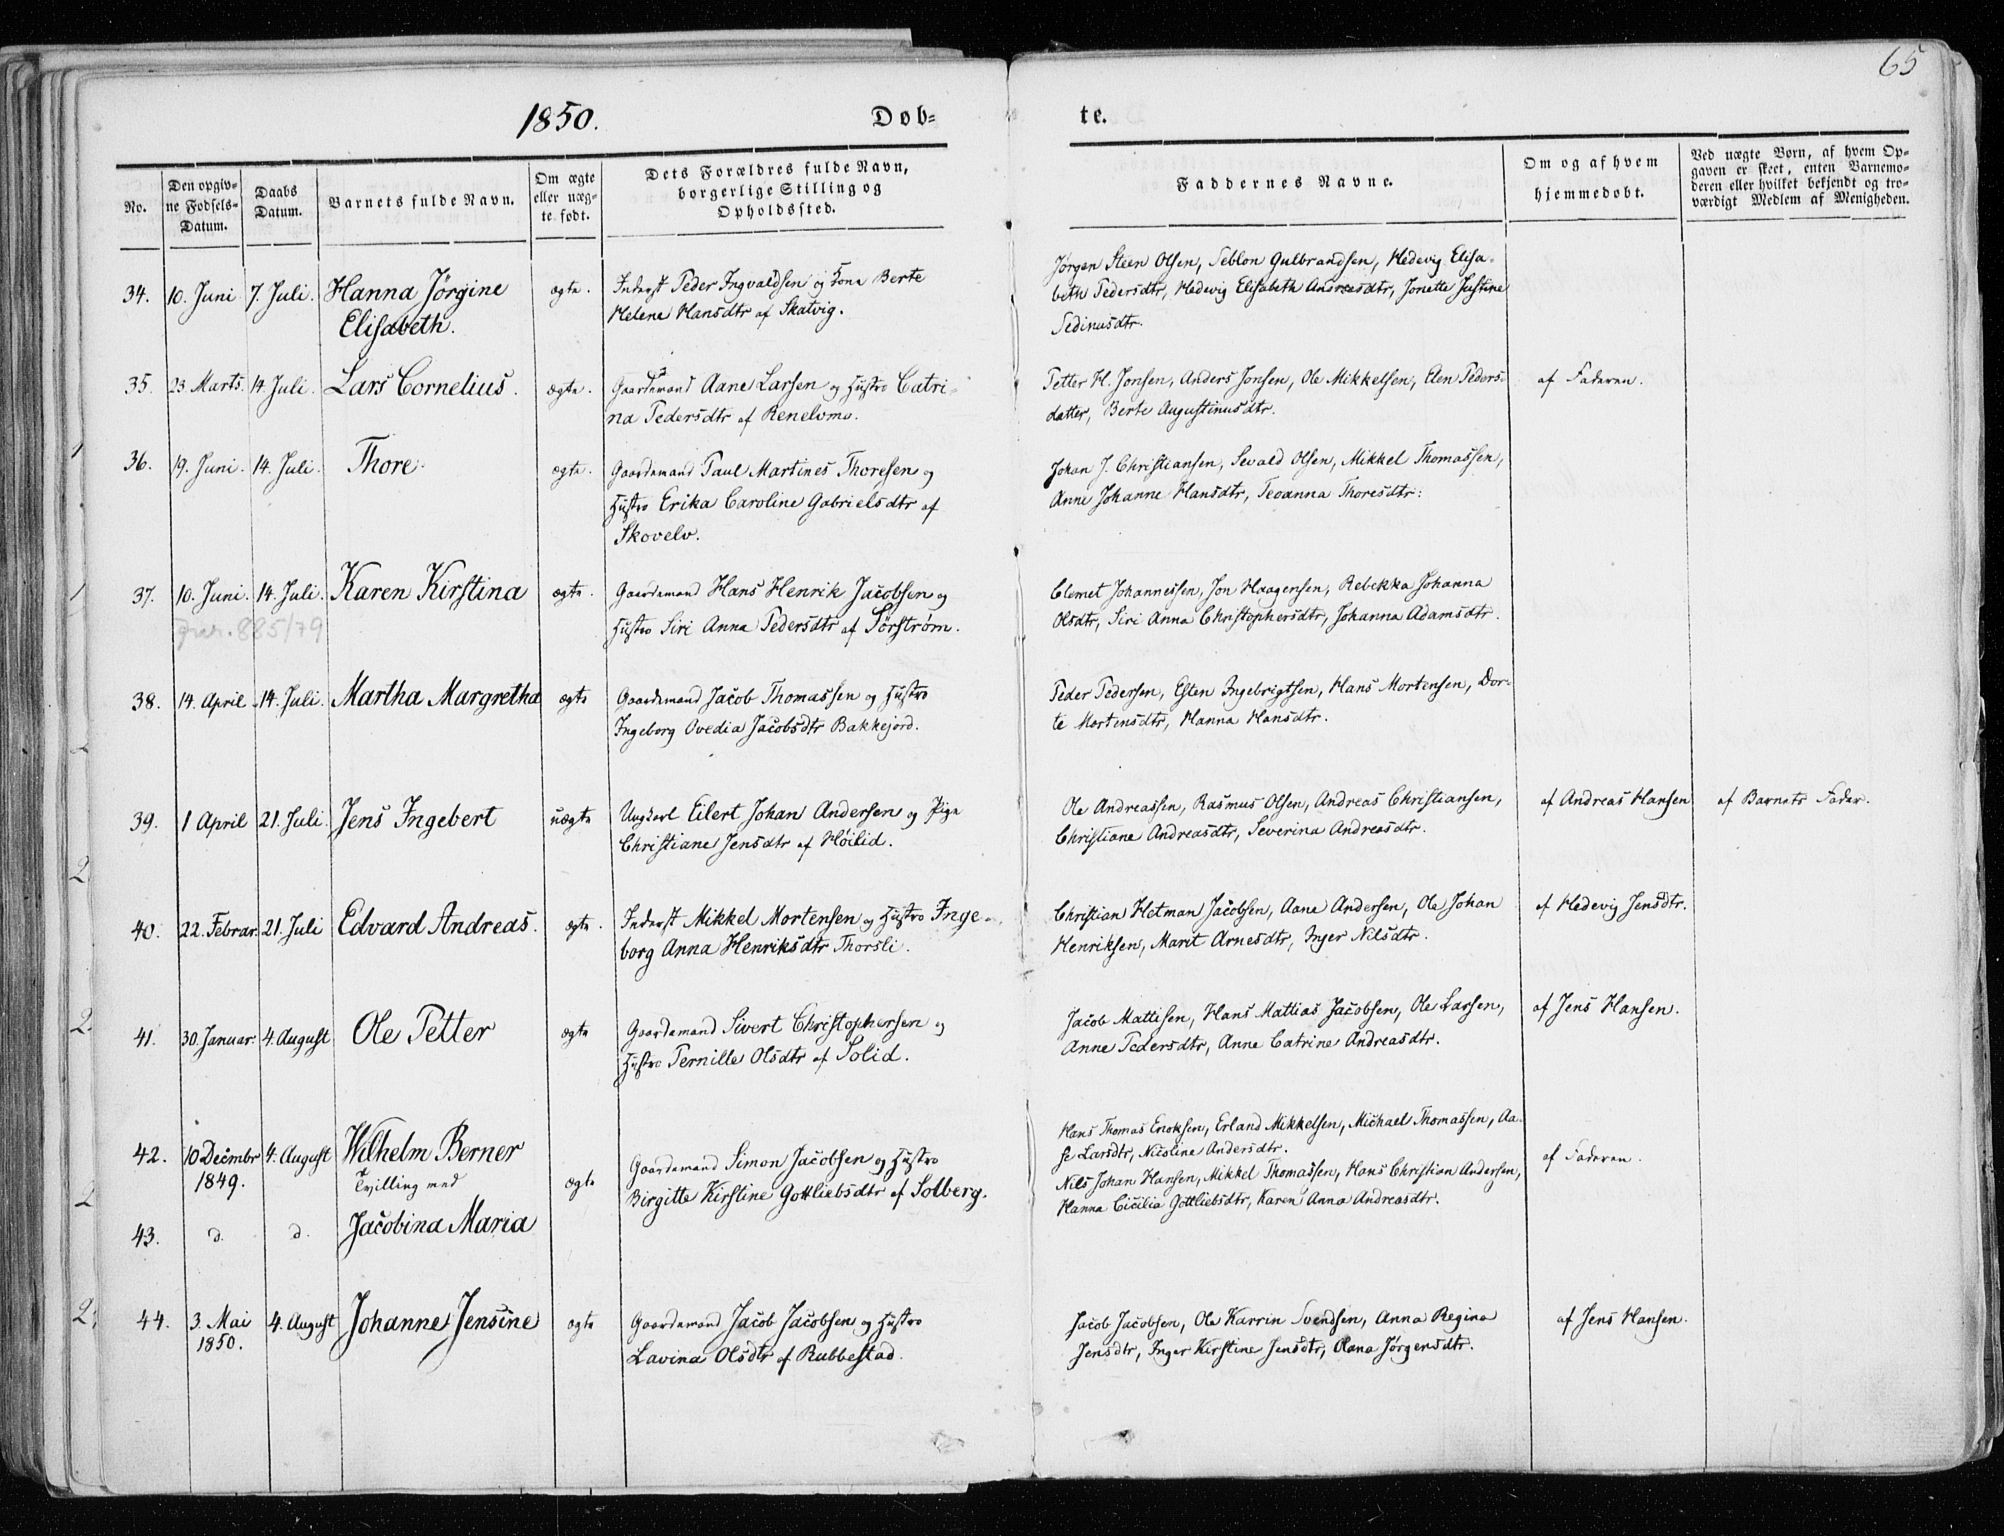 65
1850.
Døb-
te.
No.
Den opgiv-
ne Fødsels-
Datum.
Daabs
Datum.
Barnets fulde Navn.
Om ægte
eller uæg-
te født.
Dets Forældres fulde Navn,
borgerlige Stilling og
Opholdssted.
Faddernes Navne.
Om og af hvem
hjemmedøbt.
Ved uægte Børn, af hvem Op-
gaven er skeet, enten Barnemo-
deren eller hvilket bekjendt og tro-
værdigt Medlem af Menigheden.
34. 10. Juni 7. Juli. Hanna Jörgine
Elisabeth.
ægte.
Inderst Peder Ingvaldsen og Kone Berte
Helene Hansdtr af Skatvig.
Jørgen Steen Olsen, Seblon Gulbrandsen, Hedevig Elisa-
beth Pedersdtr, Hedevig Elisabeth Andreasdtr, Jonette Justine
Sedinusdtr.
35. 23 Marts. 14. Juli. Lars Cornelius. ægte.
Gaardmand Aane Larsen og Hustro Catri-
na Pedersdtr af Renelvmo.
Petter H. Jonsen, Anders Jonsen, Ole Mikkelsen, Elen Peders-
datter, Berte Augustinusdtr.
af Faderen.
36. 19. Juni. 14. Juli. Thore. ægte.
Gaardmand Paul Martines Thoresen og
Hustro Erika Caroline Gabrielsdtr af
Skovelv.
Johan J. Christiansen, Sevald Olsen, Mikkel Thomassen,
Anne Johanne Hansdtr, Teoanna Thoresdtr.
37. 10. Juni. 14. Juli. Karen Kirstina ægte.
885/79
Gaardmand Hans Henrik Jacobsen og
Hustro Siri Anna Pedersdtr af Sörstrøm.
Clemet Johannessen, Jon Haagensen, Rebekka Johanna
Olsdtr, Siri Anna Christophersdtr, Johanna Adamsdtr.
38. 14. April 14. Juli. Martha Margretha ægte
Gaardmand Jacob Thomassen og Hustro
Ingeborg Ovedia Jacobsdtr Bakkejord.
Peder Pedersen, Esten Ingebrigtsen, Hans Mortensen, Dor-
te Mortensdtr, Hanna Hansdtr.
39. 1 April 21. Juli. Jens Ingebert uægte
Ungkarl Eilert Johan Andersen og Pige
Christiane Jensdtr af Höilid.
Ole Andreassen, Rasmus Olsen, Andreas Christiansen,
Christiane Andreasdtr, Severina Andreasdtr.
af Andreas Hansen
af Barnets Fader.
40. 22. Februar. 21. Juli Edvard Andreas. ægte.
Inderst Mikkel Mortensen og Hustro Inge-
borg Anna Henriksdtr Thorsli.
Christian Hetman Jacobsen, Aane Andersen, Ole Johan
Henriksen, Marit Arnesdtr, Inger Nilsdtr.
af Hedevig Jensdtr.
41. 30. Januar. 4. August Ole Petter ægte
Gaardmand Sivert Christophersen og
Hustro Pernille Olsdtr af Solid.
Jacob Mattisen, Hans Mattias Jacobsen, Ole Larsen,
Anne Pedersdtr, Anne Catrine Andreasdtr.
af Jens Hansen.
42. 10 Decmbr 4. August Wilhelm Berner
1849.
Tvilling med
ægte
Gaardmand Simon Jacobsen og Hustro
Birgitte Kirstine Gottliebsdtr af Solberg.
Hans Thomas Enoksen, Erland Mikkelsen, Michael Thomassen, Aa-
se Larsdtr, Nicoline Andersdtr.
Nils Johan Hansen, Mikkel Thomassen, Hans Christian Andersen,
Hanna Cicilia Gottliebsdtr, Karen Anna Andreasdtr.
af Faderen.
43. d. d. Jacobina Maria
44. 3. Mai 4. August Johanne Jensine ægte
1850.
Gaardmand Jacob Jacobsen og Hustro
Lavina Olsdtr af Rubbestad.
Jacob Jacobsen, Ole Karrin Svendsen, Anna Regina
Jensdtr, Inger Kirstine Jensdtr, Olana Jørgensdtr.
af Jens Hansen.